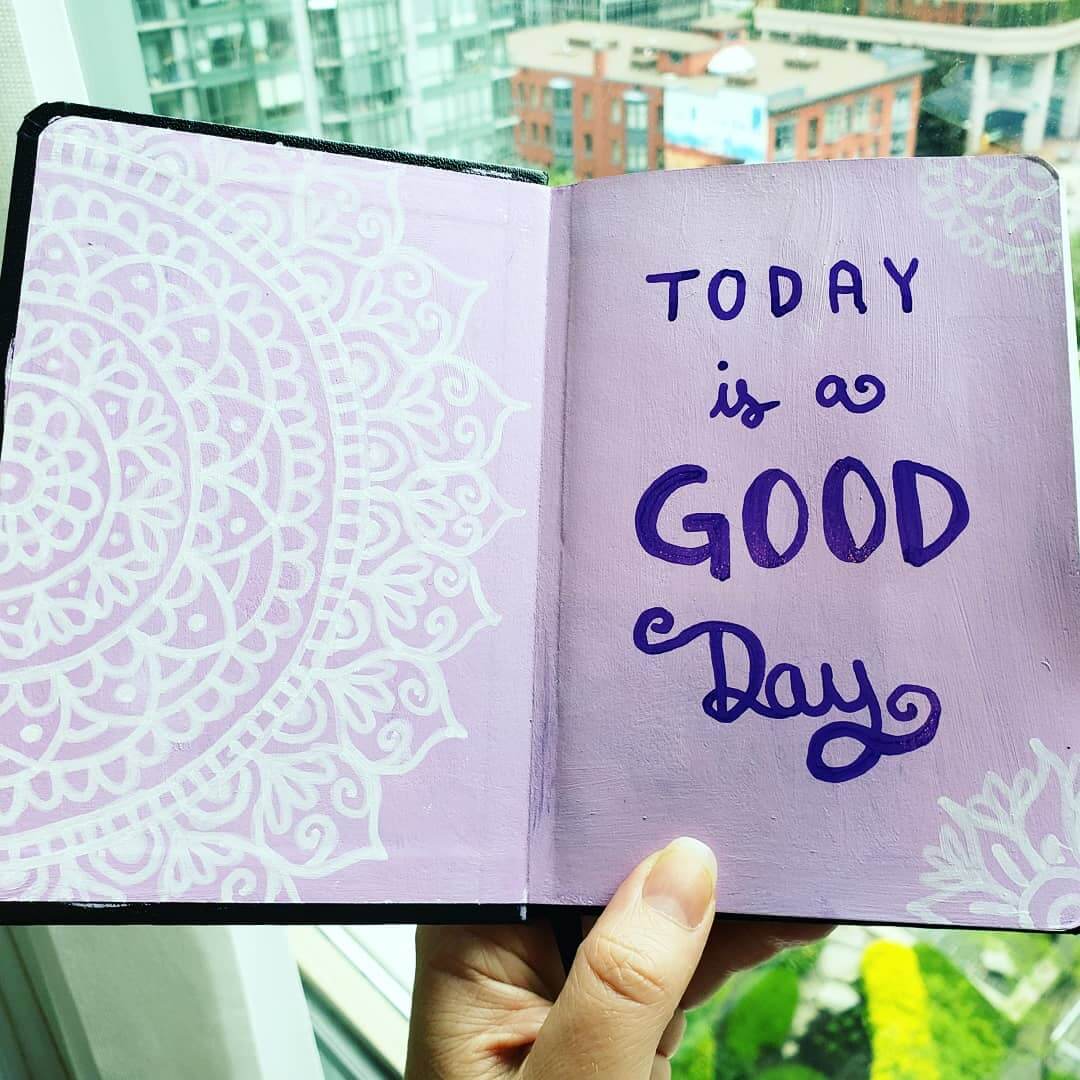 TODAY
is a
GOOD
Day